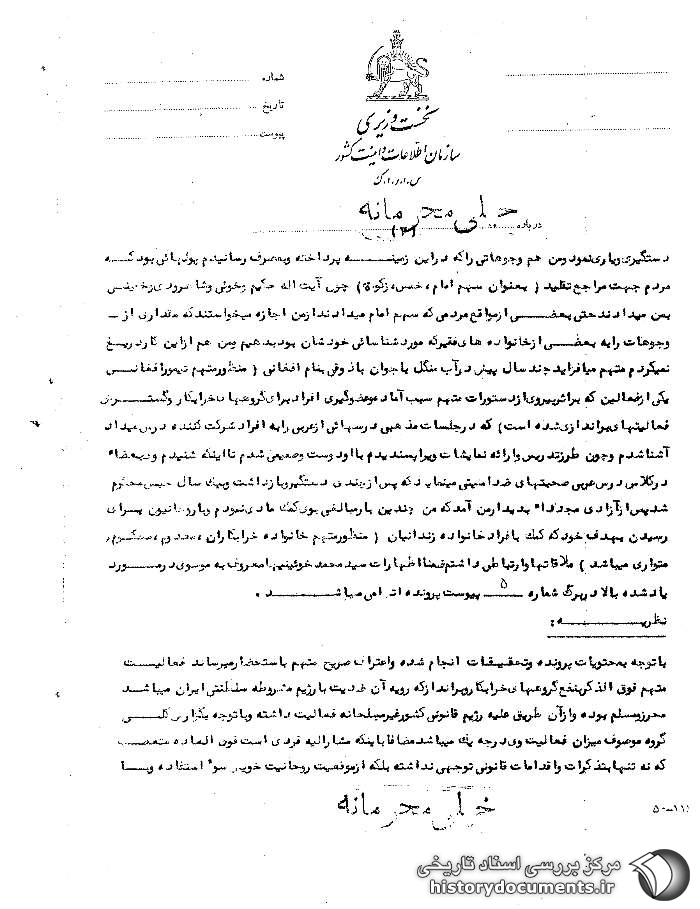 شماره
تاریخ
پیوست
نخست وزیری
سازمان اطلاعات و امنیت کشور
س.ا.و.ا.ک
خیلی محرمانه
درباره (۳)
دستگیری ویاری نمود ومن هم وجوهاتی راکه دراین زمینه پرداخته وبمصرف رسانیدم پولهائی بود که
مردم جهت مراجع تقلید ( بعنوان سهم امام ، خمس ، زکوة ) چون آیت اله حکیم وخوئی وشاهرودی وخمینی
بمن میدادند حتی بعضی ازمواقع مردمی که سهم امام میدادند ازمن اجازه میخواستند که مقداری از -
وجوهات رابه بعضی ازخانواده های فقیرکه مورد شناسائی خودشان بود بدهیم ومن هم ازاین کار دریغ
نمیکردم متهم میافزاید چند سال پیش درآب منگل باجوان باذوقی بنام افغانی ( منظورمتهم تیمورافغانی
یکی ازفعالین که براثرپیروی از دستورات متهم سبب آماده وعضوگیری افراد برای گروههای خرابکار وگسترش
فعالیتهای براندازی شده است ) که درجلسات مذهبی درسهائی ازعربی رابه افراد شرکت کننده درس میداد
آشنا شدم وچون طرزتدریس وارائه نمایشات ویرا پسندیدم بااو دوست وصمیمی شدم تااینکه شنیدم وی بعضا"
درکلاس درس عربی صحبتهای ضدامنیتی مینماید که پس ازچندی دستگیروبازداشت وبیک سال حبس محکوم
شد پس ازآزادی مجددا" بدیدارمن آمد که من چندین بارمبالغی بوی کمک مادی نمودم وباروحانیون برای
رسیدن بهدف خود که کمک بافراد خانواده زندانیان ( منظورمتهم خانواده خرابکاران ، معدوم ، محکوم ،
متواری میباشد ) ملاقاتها وارتباطی داشتم ضمنا اظهارات سید محمد خوئینیها معروف به موسوی درمورد
یادشده بالا دربرگ شماره ۵ پیوست پرونده اتهامی میباشد .
نظریه :
باتوجه به محتویات پرونده وتحقیقات انجام شده واعتراف صریح متهم باستحضارمیرساند فعالیت
متهم فوق الذکربنفع گروههای خرابکاروبراندازکه رویه آن ضدیت بارژیم مشروطه سلطنتی ایران میباشد
محرزومسلم بوده وازآن طریق علیه رژیم قانونی کشورغیرمسلحانه فعالیت داشته وباتوجه بکارائی کلی
گروه موصوف میزان فعالیت وی درجه یک میباشد مضافا باینکه مشارالیه فردی است فوق العاده متعصب
که نه تنها بتذکرات واقدامات قانونی توجهی نداشته بلکه ازموقعیت روحانیت خویش سوء استفاده وبا
خیلی محرمانه
۱۱-۵۰
مرکز بررسی اسناد تاریخی
historydocuments.ir